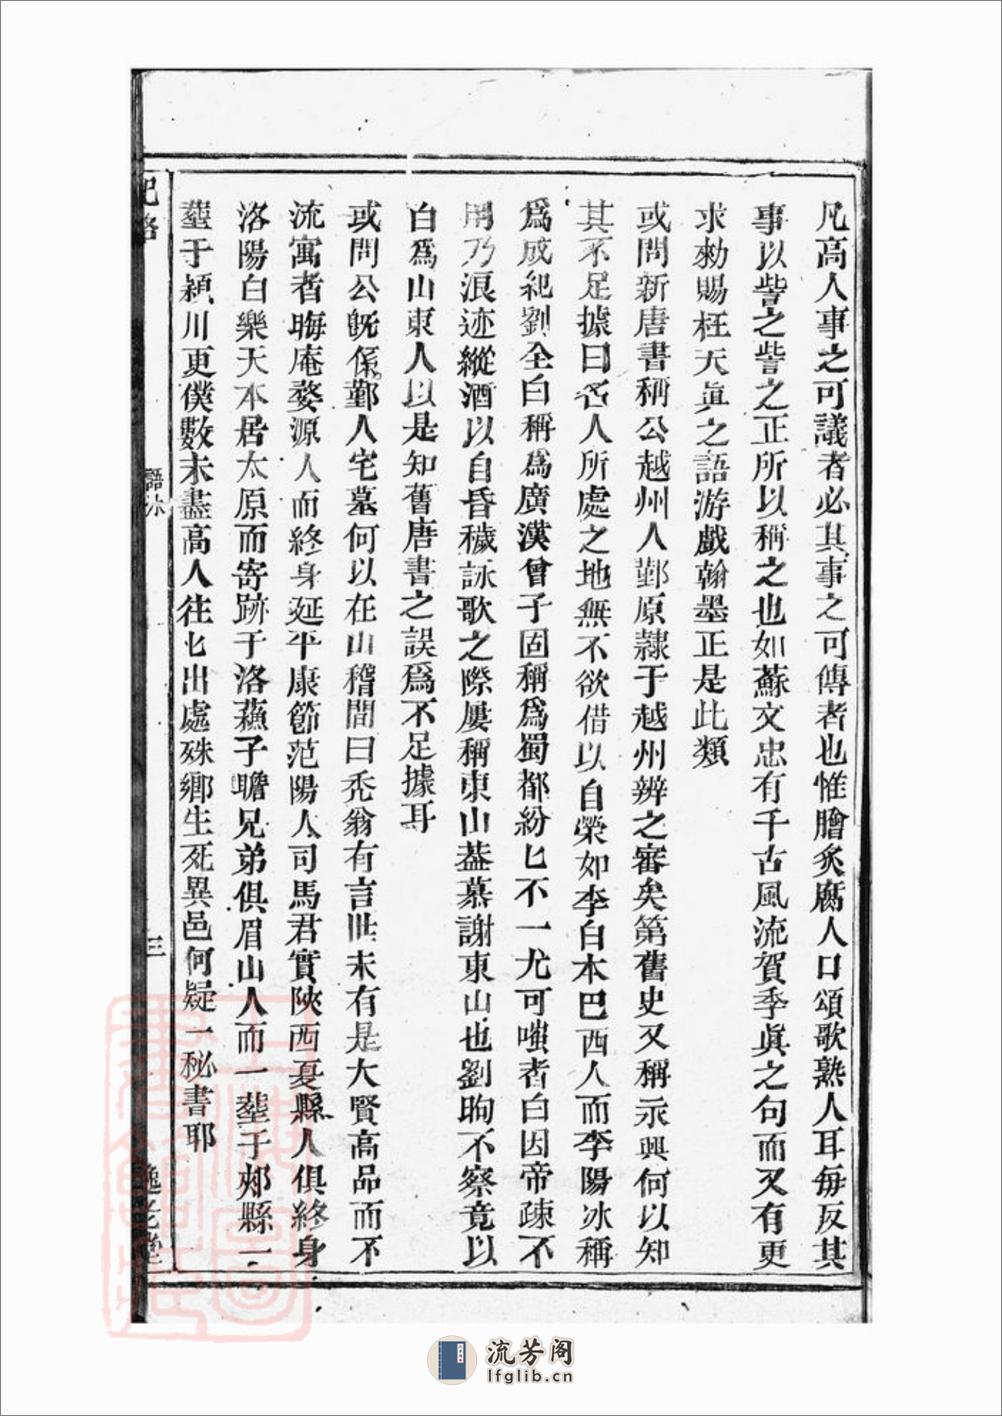 凡高人事之可議者必其事之可傳者也惟膾炙腐人口頌歌熟人耳每反其
事以訾之訾之正所以稱之也如蘇文忠有千古風流賀季眞之句而又有更
求勑賜枉天眞之語游戲翰墨正是此類
或問新唐書稱公越州人鄞原隷于越州辨之審矣第舊史又稱永興何以知
其不足據曰名人所處之地無不欲借以自榮如李白本巴西人而李陽冰稱
爲成紀劉全白稱爲廣漢曾子固稱爲蜀都紛匕不一尤可嗤者白因帝疎不
用乃浪迹縱酒以自昏穢詠歌之際屢稱東山葢慕謝東山也劉昫不察竟以
白爲山東人以是知舊唐書之誤爲不足據耳
或問公旣係鄞人宅墓何以在山稽間曰禿翁有言世未有是大賢高品而不
流寓者晦庵婺源人而終身延平康節范陽人司馬君實陝西夏縣人俱終身
洛陽白樂天本居太原而寄跡于洛蘓子瞻兄弟俱眉山人而一塟于郟縣一
塟于潁川更僕數未盡高人往匕出處殊鄉生死異邑何疑一秘書耶
紀畧
三
逸老堂
流芳阁
lfglib.cn